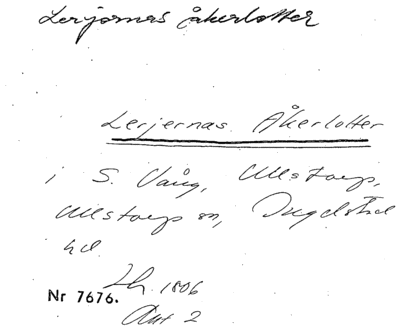 Lerjornas åkerlotter
Lerjernas Åkerlotter
i S. Vång, Ullstorp,
Ullstorp sn, Ingelstad
hd
Lh. 1806
Nr 7676.
Akt 2